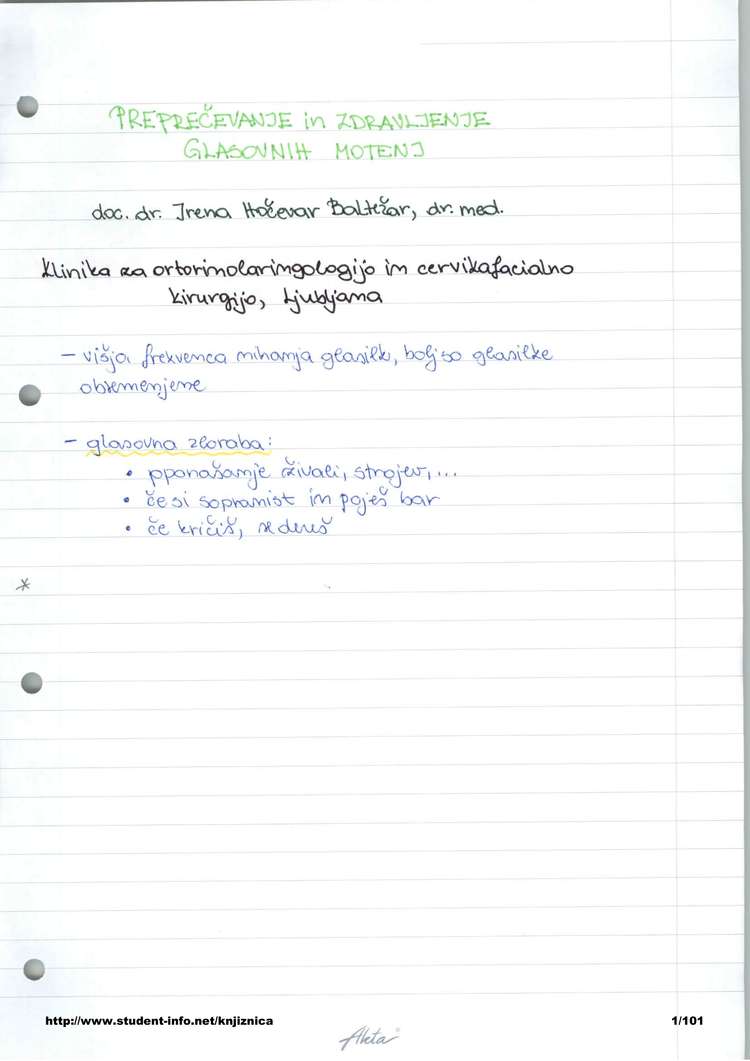 PREPREČEVANJE in ZDRAVLJENJE
GLASOVNIH MOTENJ
doc. dr. Irena Hočevar Boltežar, dr. med.
Klinika za otorinolaringologijo in cervikofacialno
kirurgijo, Ljubljana
- višja frekvenca nihanja glasilk, bolj so glasilke
obremenjene
- glasovna zloraba:
• pponašanje živali, strojev, ...
• če si sopranist in poješ bar
• če kričiš, se dereš
*
http://www.student-info.net/knjiznica
1/101
Akta